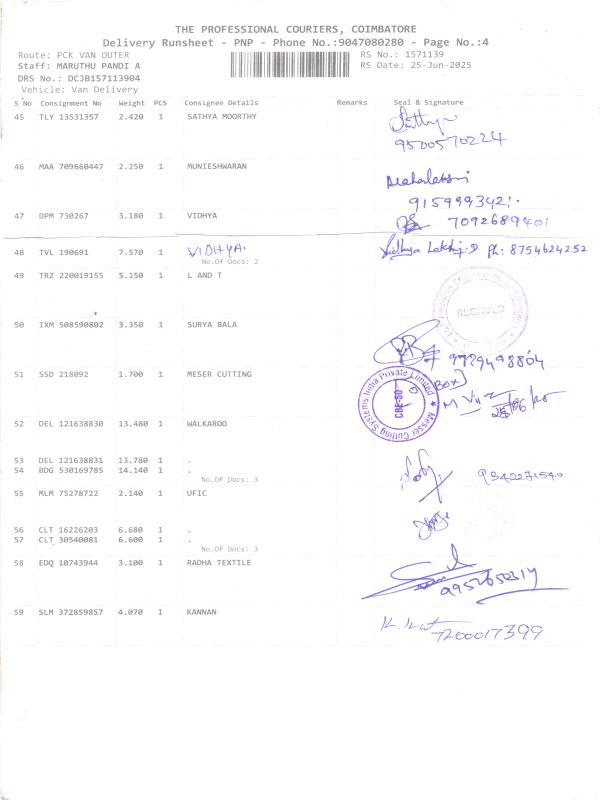 THE PROFESSIONAL COURIERS, COIMBATORE
Delivery Runsheet - PNP - Phone No.:9047080280 - Page No.:4
Route: PCK VAN OUTER RS No.: 1571139
Staff: MARUTHU PANDI A RS Date: 25-Jun-2025
DRS No.: DCJB157113904
Vehicle: Van Delivery
S No Consignment No Weight PCS Consignee Details Remarks Seal & Signature
45 TLY 13531357 2.420 1 SATHYA MOORTHY
9500570224
46 MAA 709660447 2.250 1 MUNIESHWARAN
Mahalakshmi
9159993421.
47 DPM 730267 3.180 1 VIDHYA 7092689401
48 TVL 190691 7.570 1 VIDHYA. Vidhya Lakshmi.D Ph: 8754624252
No.Of Docs: 2
49 TRZ 220019155 5.150 1 L AND T
RECEIVED
50 IXM 508590802 3.350 1 SURYA BALA
9729498804
51 SSD 218092 1.700 1 MESER CUTTING
Messer Cutting Systems India Private Limited
CBE-50
BOX
52 DEL 121638830 13.480 1 WALKAROO
53 DEL 121638831 13.780 1 .
54 BDG 530169785 14.140 1 . 9342271540
No.Of Docs: 3
55 MLM 75278722 2.140 1 UFIC
56 CLT 16226203 6.680 1 .
57 CLT 30540081 6.600 1 .
No.Of Docs: 3
58 EDQ 10743944 3.100 1 RADHA TEXTILE
59 SLM 372859857 4.070 1 KANNAN
7200017399